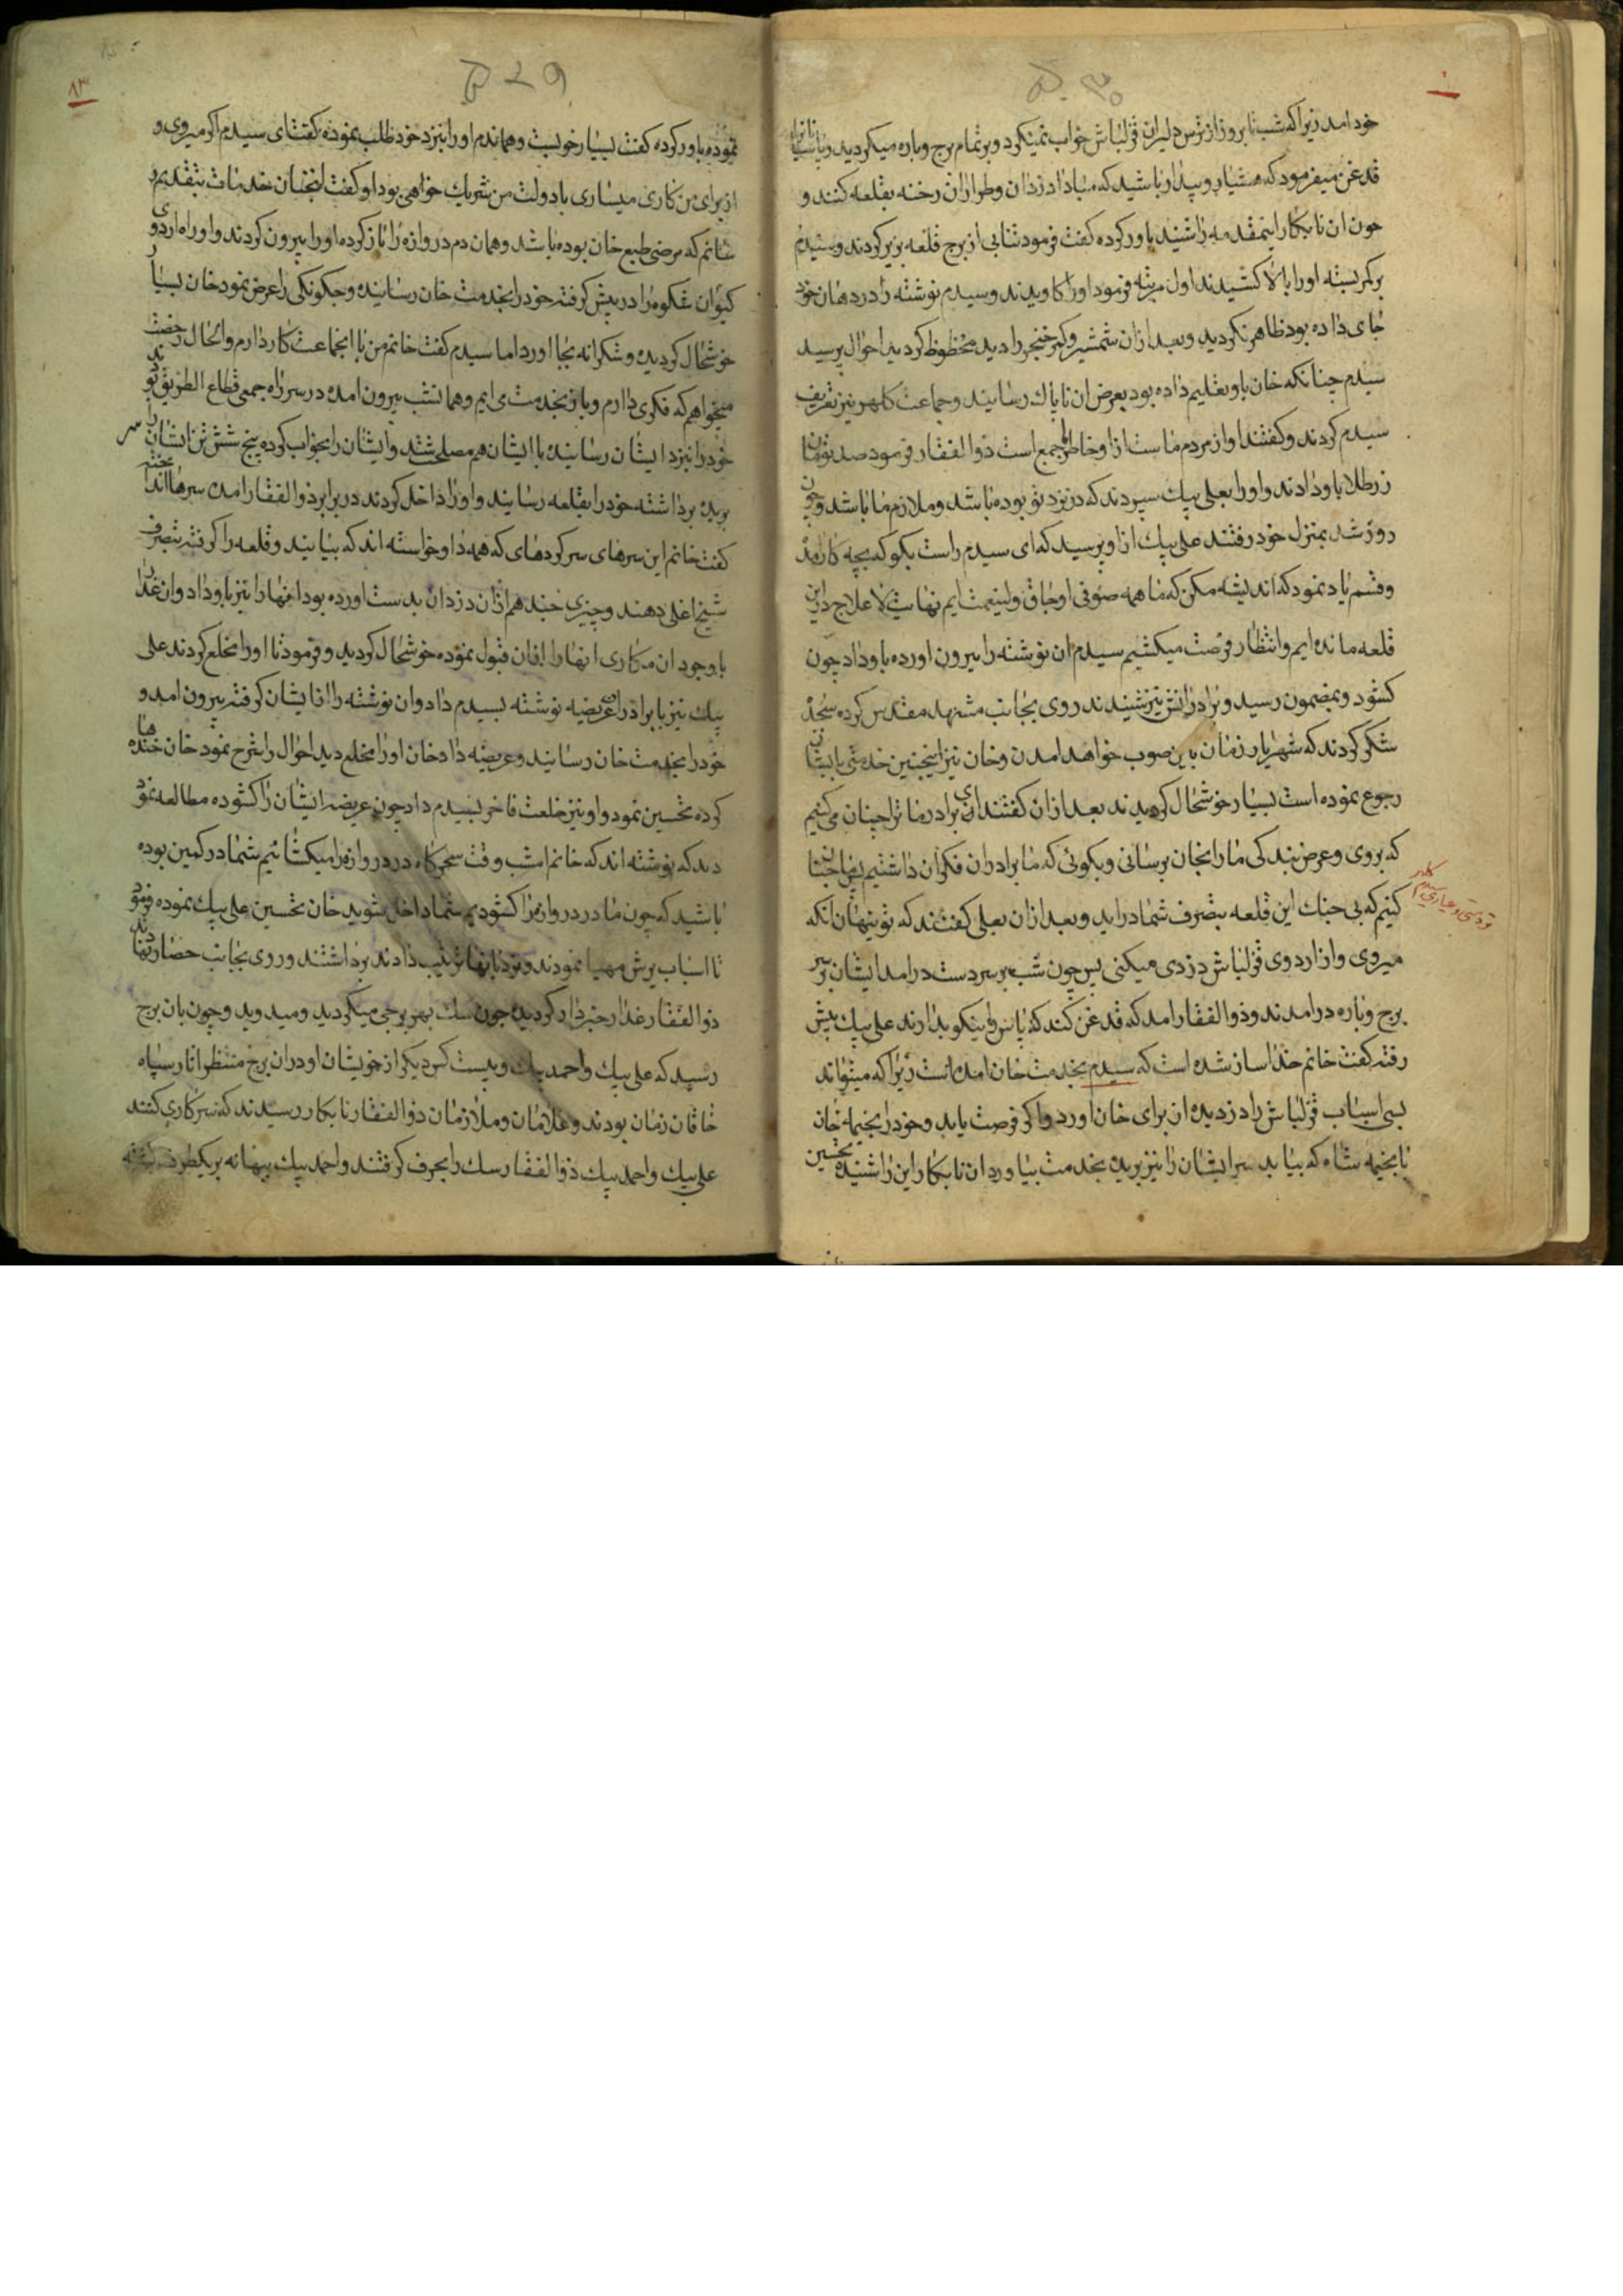 خود امد زیرا که شب تا بروز از ترس دلیران قزلباش خواب نمیکرد و بر تمام برج و باره میکردید و پاسبانانرا
قدغن میفرمود که هشیار و بیدار باشید که مبادا دزدان و طراران رخنه بقلعه کنند و
چون ان نابکار اینمقدمه را شنید باور کرده کفت فرمود تنابی از برج قلعه بزیر کردند و سیدم
بر کمر بسته او را بالا کشیدند اول مرتبه فرمود او را کاویدند و سیدم نوشته را در دهان خود
جای داده بود ظاهر نکردید و بعد از ان شمشیر و کمر خنجر را دید محظوظ کردید احوال پرسید
سیدم چنانکه خان باو تعلیم داده بود بعرض ان ناپاک رسانید و جماعت کلهر نیز تعریف
سیدم کردند و کفتند او از مردم ماست از او خاطر جمع است ذو الفقار فرمود صد تومان
زر طلا باو دادند و او را بعلی بیک سپردند که در نزد تو بوده باشد و ملازم ما باشد و چون
روز شد بمنزل خود رفتند علی بیک از او پرسید که ای سیدم راست بکو که بچه کار امدۀ
و قسم یاد نمود که اندیشه مکن که ما همه صوفی اوجاق ولینعمت ایم نهایت لا علاج در این
قلعه مانده ایم و انتظار فرصت میکشیم سیدم ان نوشته را بیرون اورده باو داد چون
کشود و بمضمون رسید و برادرانش نیز شنیدند روی بجانب مشهد مقدس کرده سجدۀ
شکر کردند که شهریار زمان باین صوب خواهد امدن و خان نیز اینچنین خدمتی بایشان
رجوع نموده است بسیار خوشحال کردیدند بعد از ان کفتند ای برادر ما ترا چنان می کنیم
که بروی و عرض بندکی ما را بخان برسانی و بکوئی که ما برادران فکر ان داشتیم
کنیم که بی جنک این قلعه بتصرف شما دراید و بعد از ان بعلی کفتند که تو پنهان انکه
میروی و از اردوی قزلباش دزدی میکنی پس چون شب بر سر دست درامد ایشان بر سر
برج و باره درامدند و ذو الفقار امد که قدغن کند که پاس را نیکو بدارند علی بیک پیش
رفته کفت خانم خدا ساز شده است که سیدم بخدمت خان امده است زیرا که میتواند
بسی اسباب قزلباش را دزدیده از برای خان اورد و اکر فرصت یابد و خود را بخیمه خان
تا بخیمه شاه که بیابد سر ایشان را نیز بریده بخدمت بیاورد ان نابکار این را شنیده تحسین
نموده باور کرده کفت بسیار خوبست و هماندم او را بنزد خود طلب نموده کفت ای سیدم اکر میروی و
از برای من کاری میسازی با دولت من شریک خواهی بود او کفت انچنان خدمات بتقدیم
رسانم که مرضی طبع خان بوده باشد و همان دم دروازه را باز کرده او را بیرون کردند و او راه اردوی
کیوان شکوه را در پیش کرفته خود را بخدمت خان رسانیده و چکونکی را عرض نمود خان بسیار
خوشحال کردیده و شکرانه بجا اورد اما سیدم کفت خانم من با انجماعت کار دارم و الحال رخصت
میخواهم که فکری دارم و باز بخدمت می ایم و همانشب بیرون امده در سر راه جمعی قطاع الطریق بودند
خود را بنزد ایشان رسانیده با ایشان هم مصلحت شد و ایشان را بخواب کرده پنج شش تن ایشان را سر
بریده برداشته خود را بقلعه رسانید و او را داخل کردند در برابر ذو الفقار امده سرها انداخته
کفت خانم این سرهای سرکردهای که همه داوخواسته اند که بیایند و قلعه را کرفته بتصرف
شیخ اغلی دهند و چیزی چند هم از ان دزدان بدست اورده بود انها را نیز باو داد و ان غدار
با وجود ان مکاری انها را از ان قبول نموده خوشحال کردید و فرمود تا او را مخلع کردند علی
بیک نیز با برادران عریضه نوشته بسیدم داد و ان نوشته را از ایشان کرفته بیرون امد و
خود را بخدمت خان رسانید و عریضه داد خان او را مخلع دید احوال را شرح نمود خان خندها
کرده تحسین نمود و او نیز خلعت فاخر بسیدم داد چون عریضه ایشان را کشوده مطالعه نمود
دید که نوشته اند که خانم امشب وقت سحرکاه در دروازه را میکشائیم شما در کمین بوده
باشید که چون ما در دروازه را کشودیم شما داخل شوید خان تحسین علی بیک نموده فرمود
تا اسباب یرش مهیا نمودند و نردبانها ترتیب دادند برداشتند و روی بجانب حصار نهادند
ذو الفقار غدار خبردار کردیده چون سک بهر برجی میکردید و میدوید و چون بان برج
رسید که علی بیک و احمد بیک و بیست کس دیکر از خویشان او در ان برج منتظر اثار سپاه
خاقان زمان بودند و غلامان و ملازمان ذو الفقار نابکار رسیدند که سرکاری کنند
علی بیک و احمد بیک ذو الفقار سک را بحرف کرفتند و احمد بیک ببهانه بر یکطرف
تردستی و عیاری سیدم کلهر
۸۳